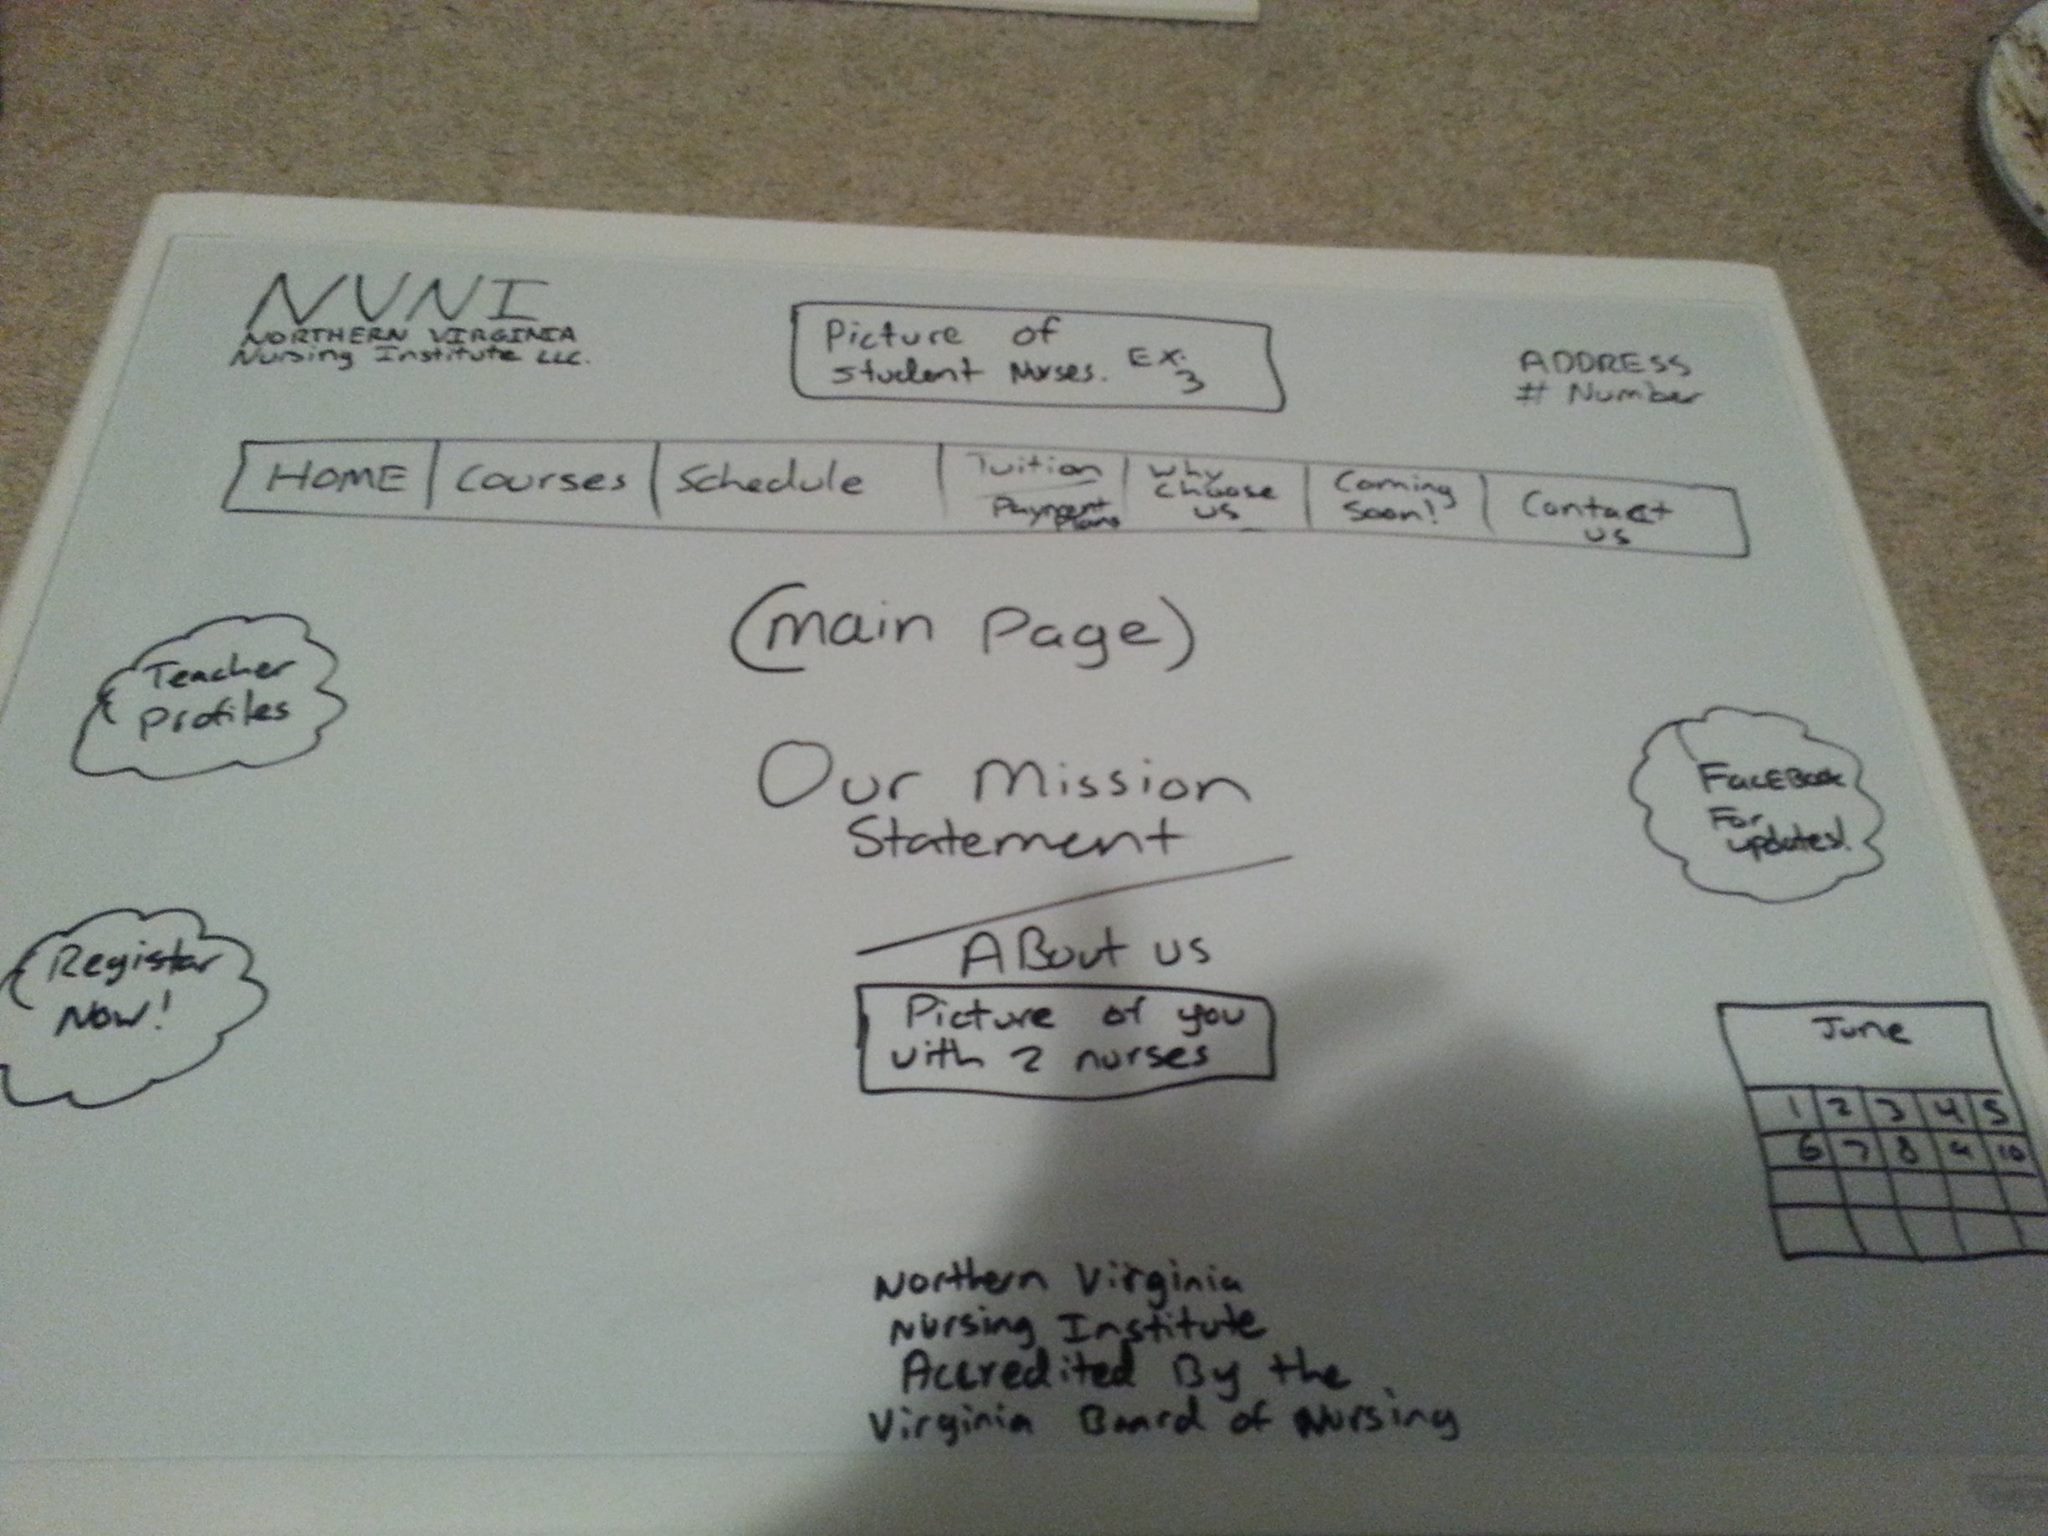 NVNI
NORTHERN VIRGINIA
Nursing Institute LLC.
Picture of
student Nurses. Ex.
3
ADDRESS
# Number
HOME
Courses
Schedule
Tuition
Payment
Plans
Why
Choose
us
Coming
Soon!
Contact
us
(Main Page)
Teacher
Profiles
Our Mission
Statement
FaceBook
For
updates!
Registar
Now!
ABout us
Picture of you
with 2 nurses
June
1 2 3 4 5
6 7 8 9 10
Northern Virginia
Nursing Institute
Accredited By the
Virginia Board of Nursing